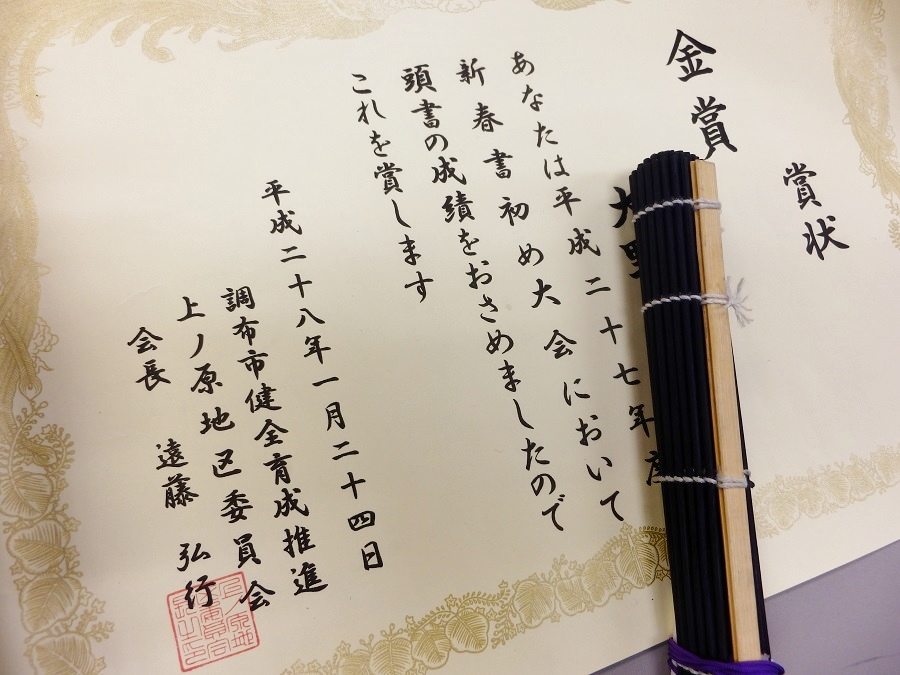 賞状
金賞
大野
あなたは平成二十七年度
新春書初め大会において
頭書の成績をおさめましたので
これを賞します
平成二十八年一月二十四日
調布市健全育成推進
上ノ原地区委員会
会長 遠藤 弘行